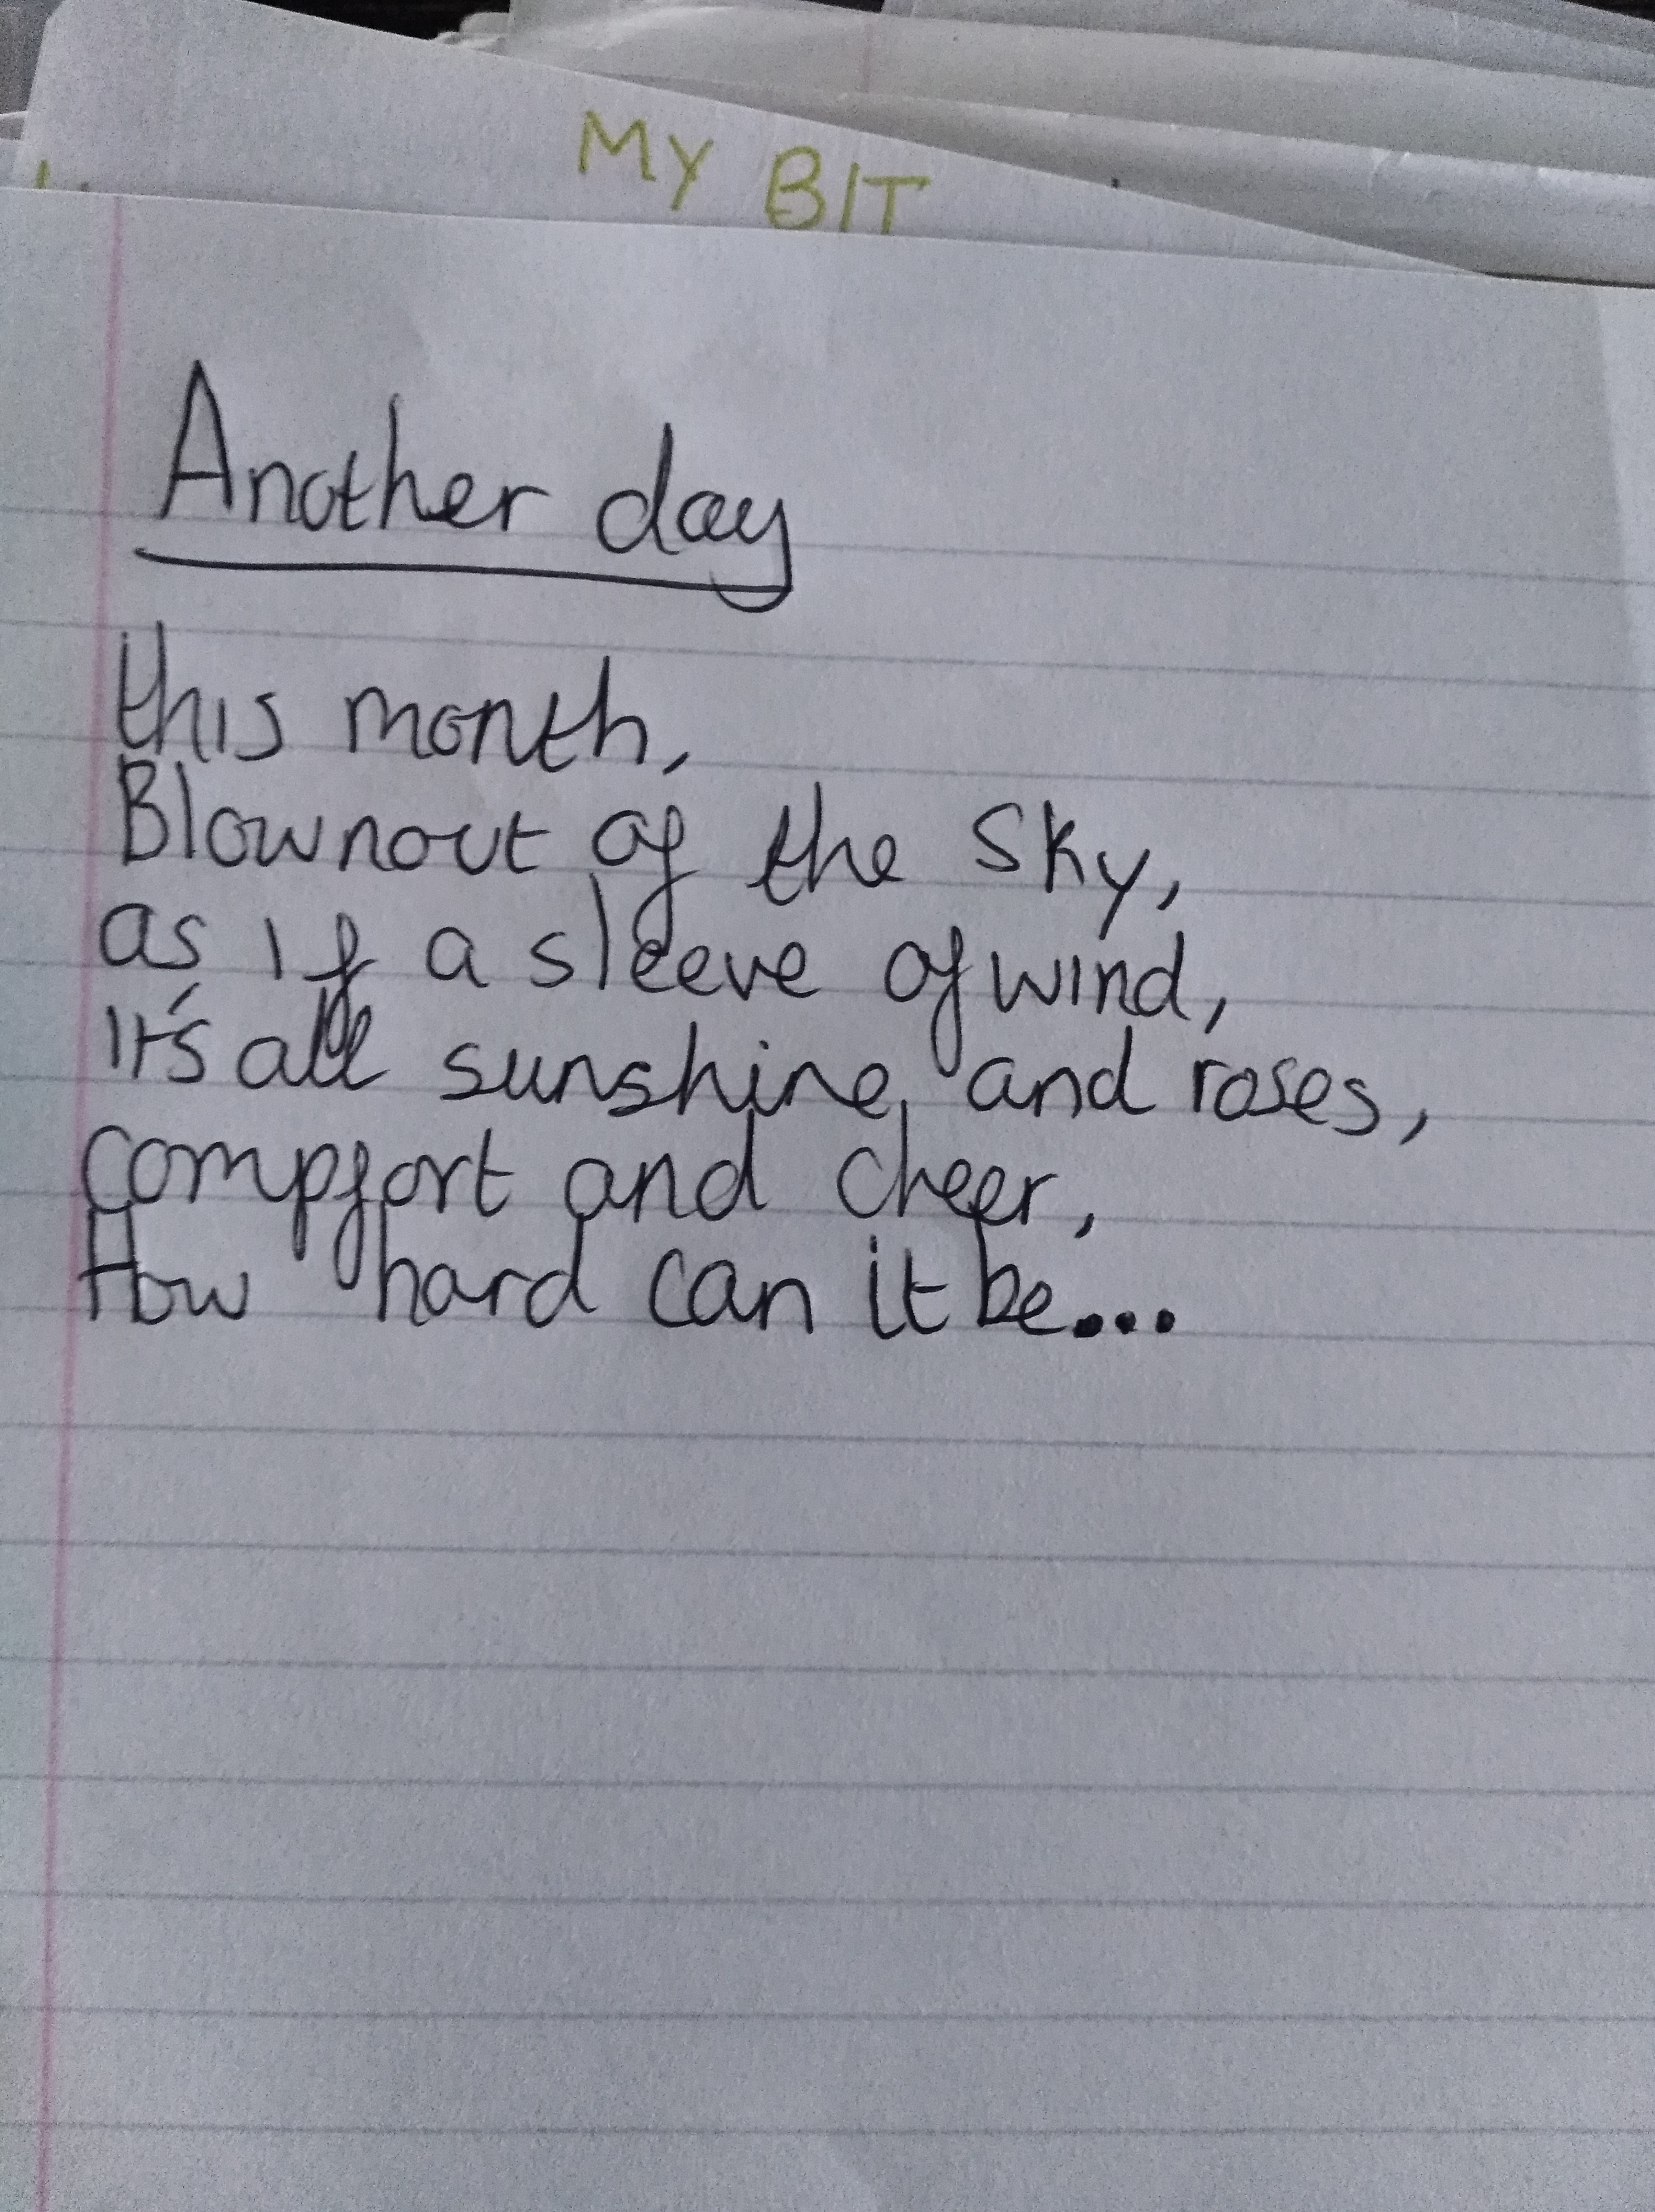 MY BIT
Another day
this month,
Blownout of the sky,
as if a sleeve of wind,
It's all sunshine, and roses,
compfort and cheer,
How hard can it be...